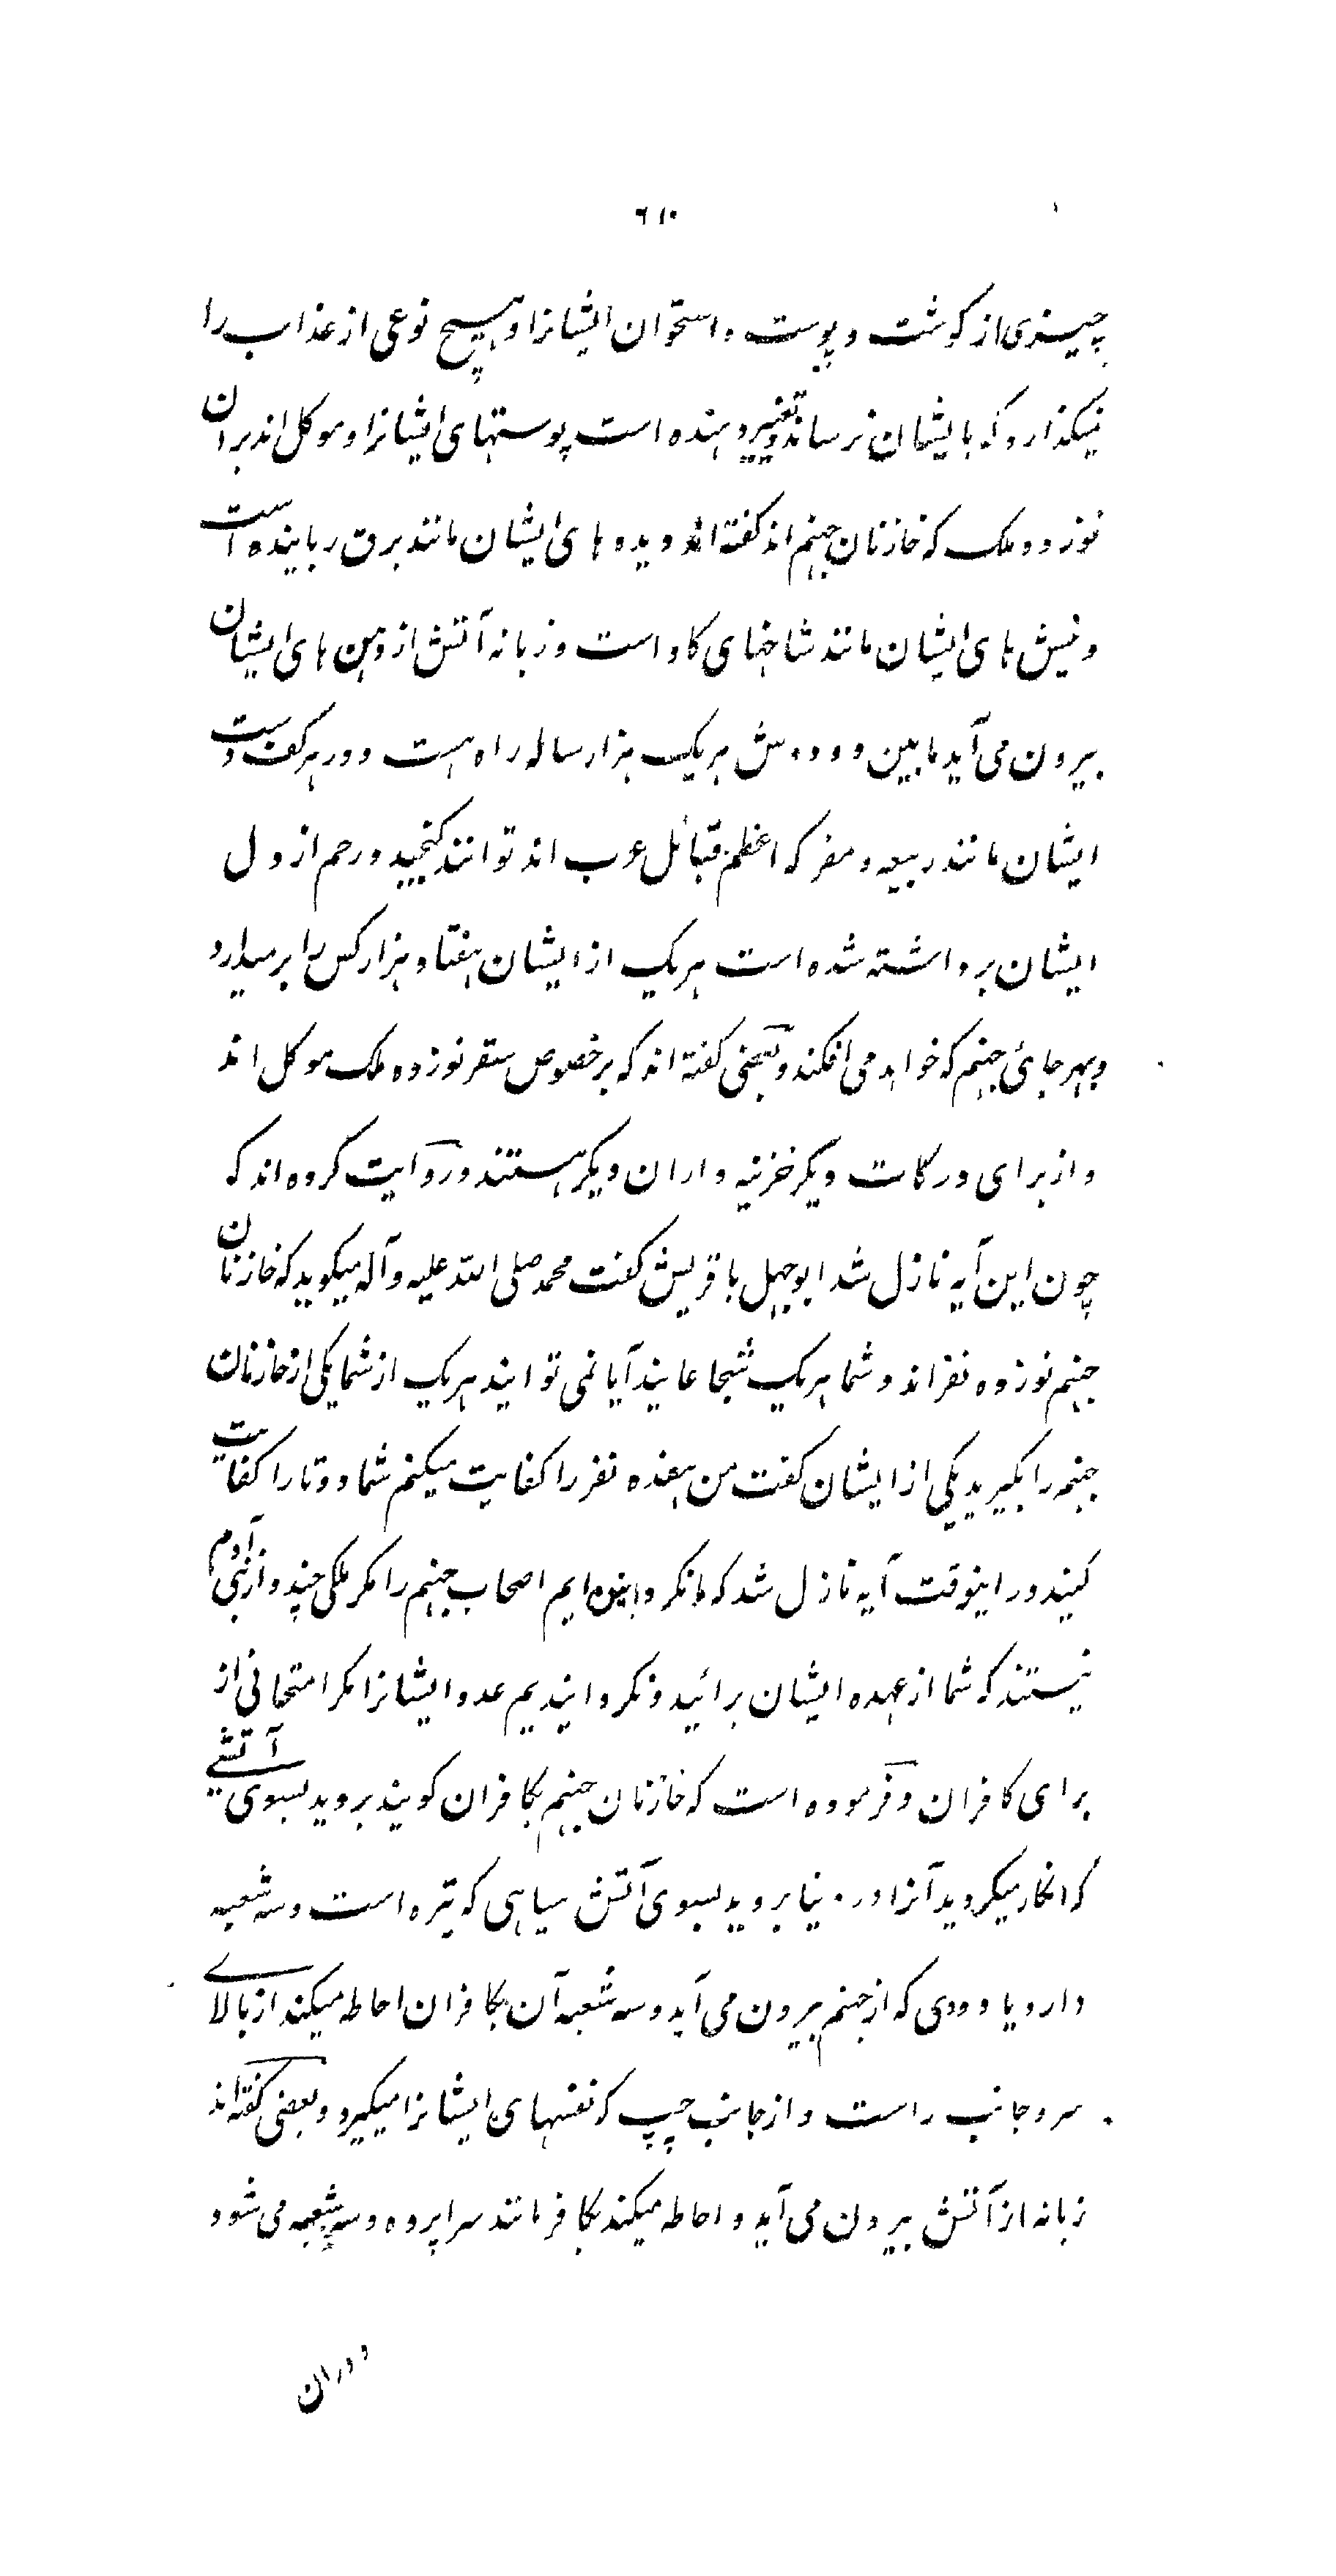 ٦١٠
چیزی از کوشت و پوست و استخوان ایشانرا و هیچ نوعی از عذاب را
نمیکذارد که بایشان نرساند و تغییر دهنده است پوستهای ایشانرا و موکل اند بر ان
نوزده ملک که خازنان جهنم اند کفته اند دیده های ایشان مانند برق رباینده است
و نیش های ایشان مانند شاخهای کاو است و زبانه آتش از دهن های ایشان
بیرون می آید مابین دو دوش هریک هزار ساله راه هست و در هر کف دست
ایشان مانند ربیعه و مضر که اعظم قبائل عرب اند توانند کنجید و رحم از دل
ایشان برداشته شده است هریک از ایشان هفتاد هزار کس را برمیدارد
و بهر جائی جهنم که خواهد می افکند و بعضی کفته اند که بر خصوص سقر نوزده ملک موکل اند
و از برای درکات دیکر خزینه داران دیکر هستند و روایت کرده اند که
چون این آیه نازل شد ابوجهل با قریش کفت محمد صلی الله علیه و آله میکوید که خازنان
جهنم نوزده نفر اند و شما هریک شجاعایند آیا نمی توانید هریک از شما یکی از خازنان
جهنم را بکیرید یکی از ایشان کفت من هفده نفر را کفایت میکنم شما دو تا را کفایت
کنید در اینوقت آیه نازل شد که ما نکردانیده ایم اصحاب جهنم را مکر ملکی چند و از بنی آدم
نیستند که شما از عهده ایشان برائید و نکردانیدیم عدد ایشانرا مکر امتحانی از
برای کافران و فرموده است که خازنان جهنم بکافران کویند بروید بسوی آتشے
که انکار میکردید آنرا در دنیا بروید بسوی آتش سیاهی که تیره است و سه شعبه
دارد یا دودی که از جهنم بیرون می آید و سه شعبه آن بکافران احاطه میکند از بالاے
سر و جانب راست و از جانب چپ که نفسهای ایشانرا میکیرد و بعضی کفته اند
زبانه از آتش بیرون می آید و احاطه میکند بکافر مانند سراپرده و سه شعبه می شود
و دران